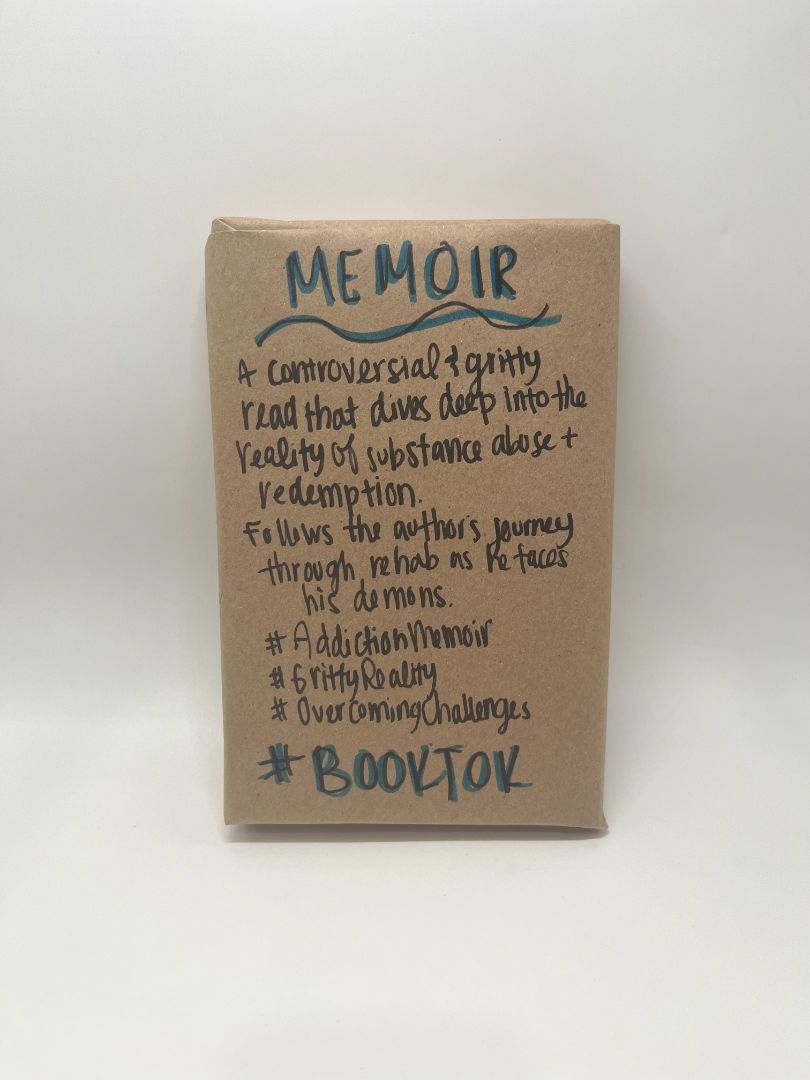 MEMOIR
A controversial & gritty
read that dives deep into the
reality of substance abuse +
redemption.
Follows the author's journey
through rehab as he faces
his demons.
#AddictionMemoir
#GrittyReality
#OvercomingChallenges
#BOOKTOK